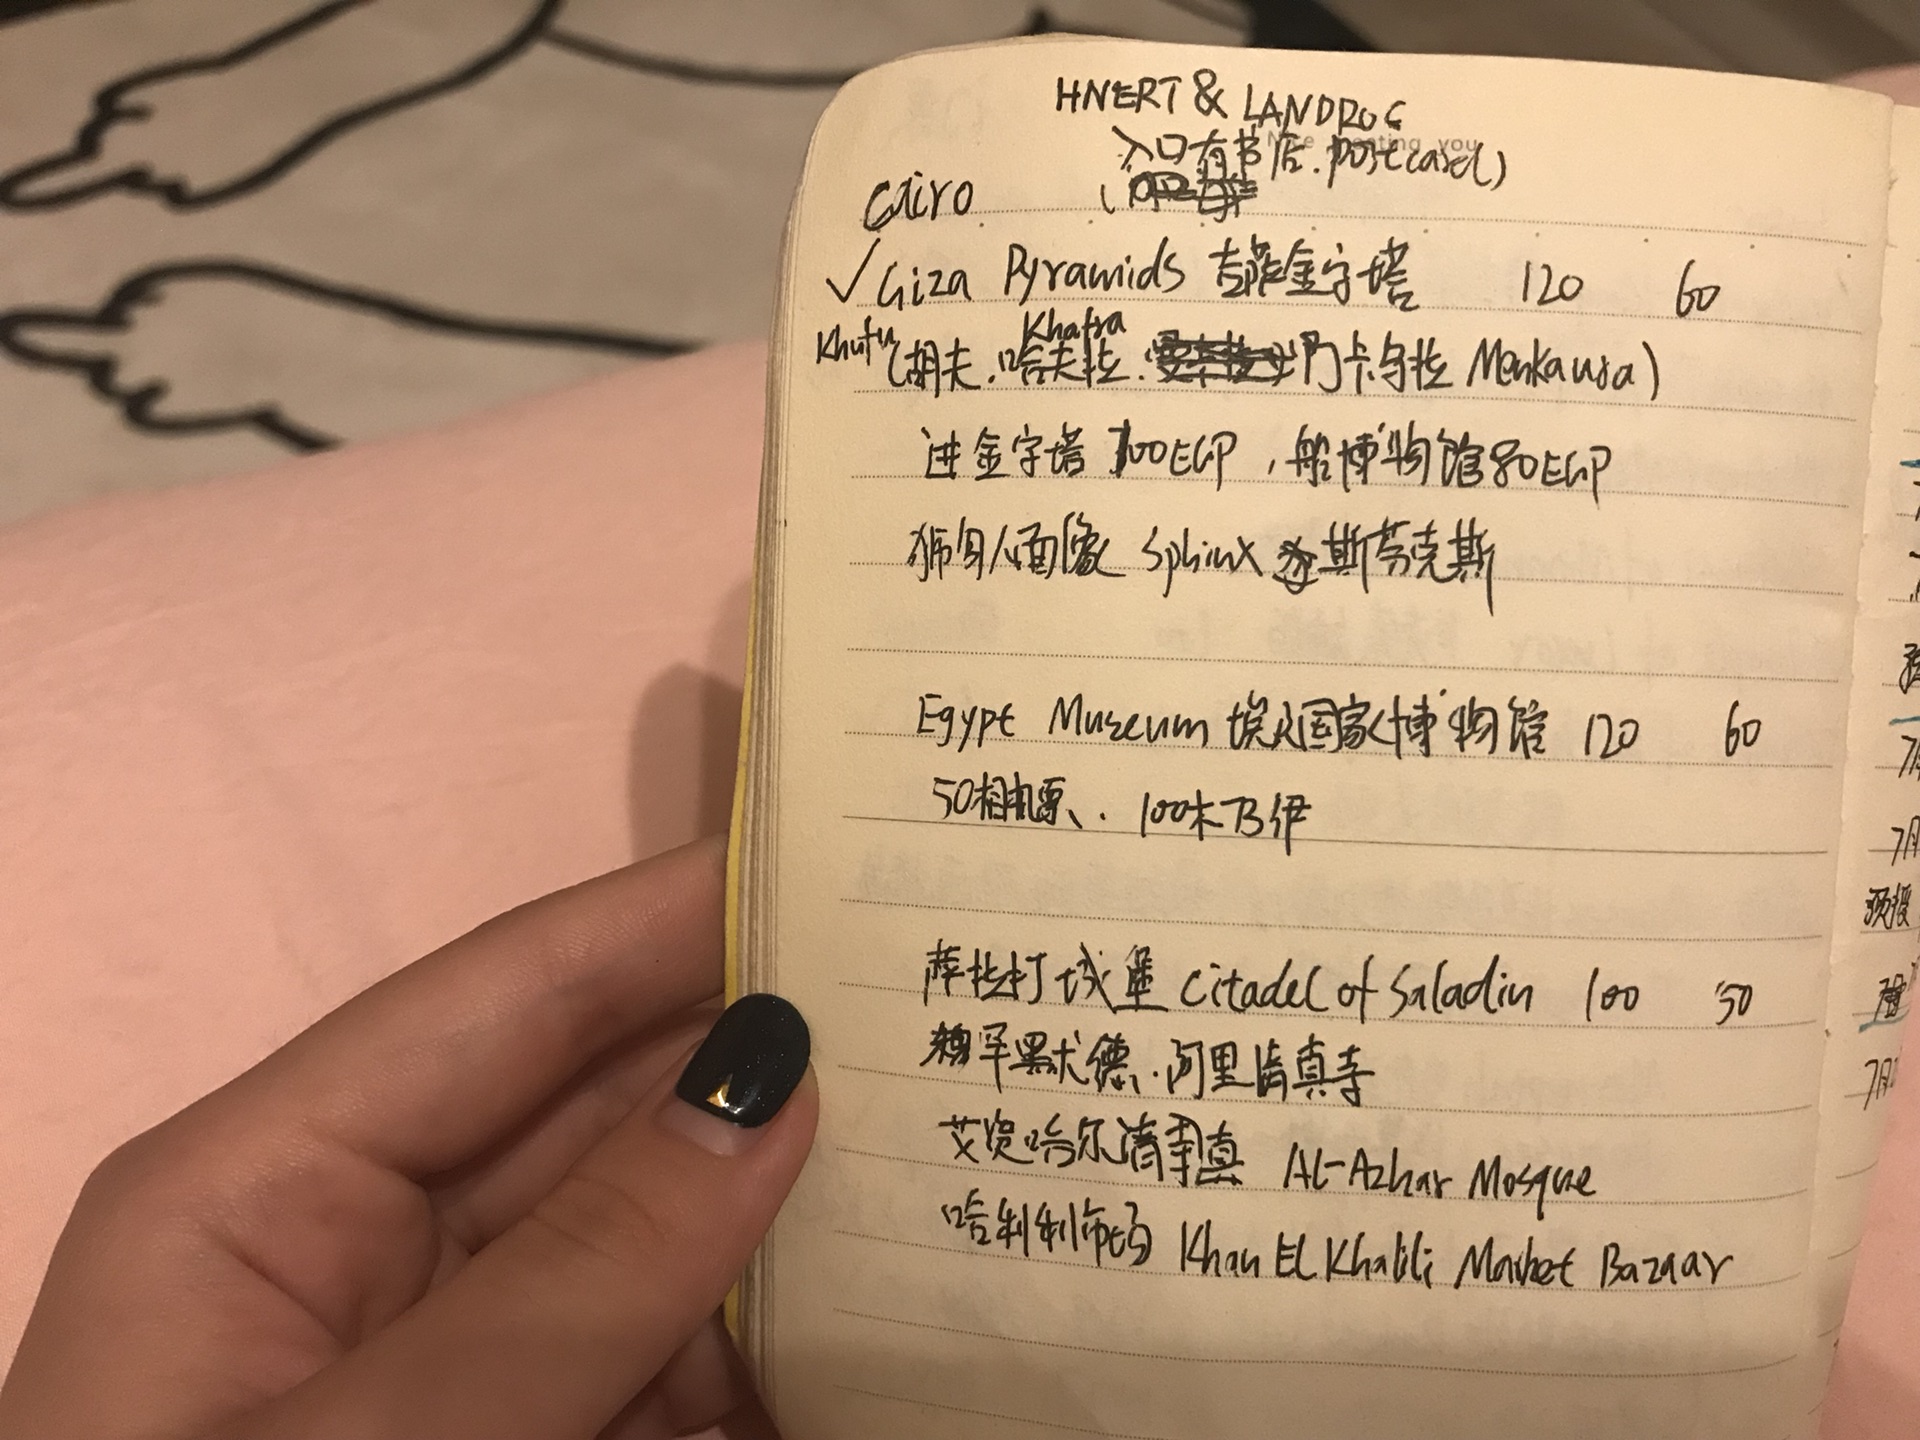 HNERT & LANDROC
入口有书店. postcard)
Cairo
✓ Giza Pyramids 吉萨金字塔 120 60
Khufu Khafra
(胡夫.哈夫拉. 门卡乌拉 Menkaura)
进金字塔 100EGP , 船博物馆80EGP
狮身人面像 Sphinx 斯芬克斯
Egypt Museum 埃及国家博物馆 120 60
50相机票、. 100木乃伊
萨拉丁城堡 Citadel of Saladin 100 50
罕默德.阿里清真寺
艾资哈尔清真 Al-Azhar Mosque
哈利利市场 Khan El Khalili Market Bazaar
7月
预授